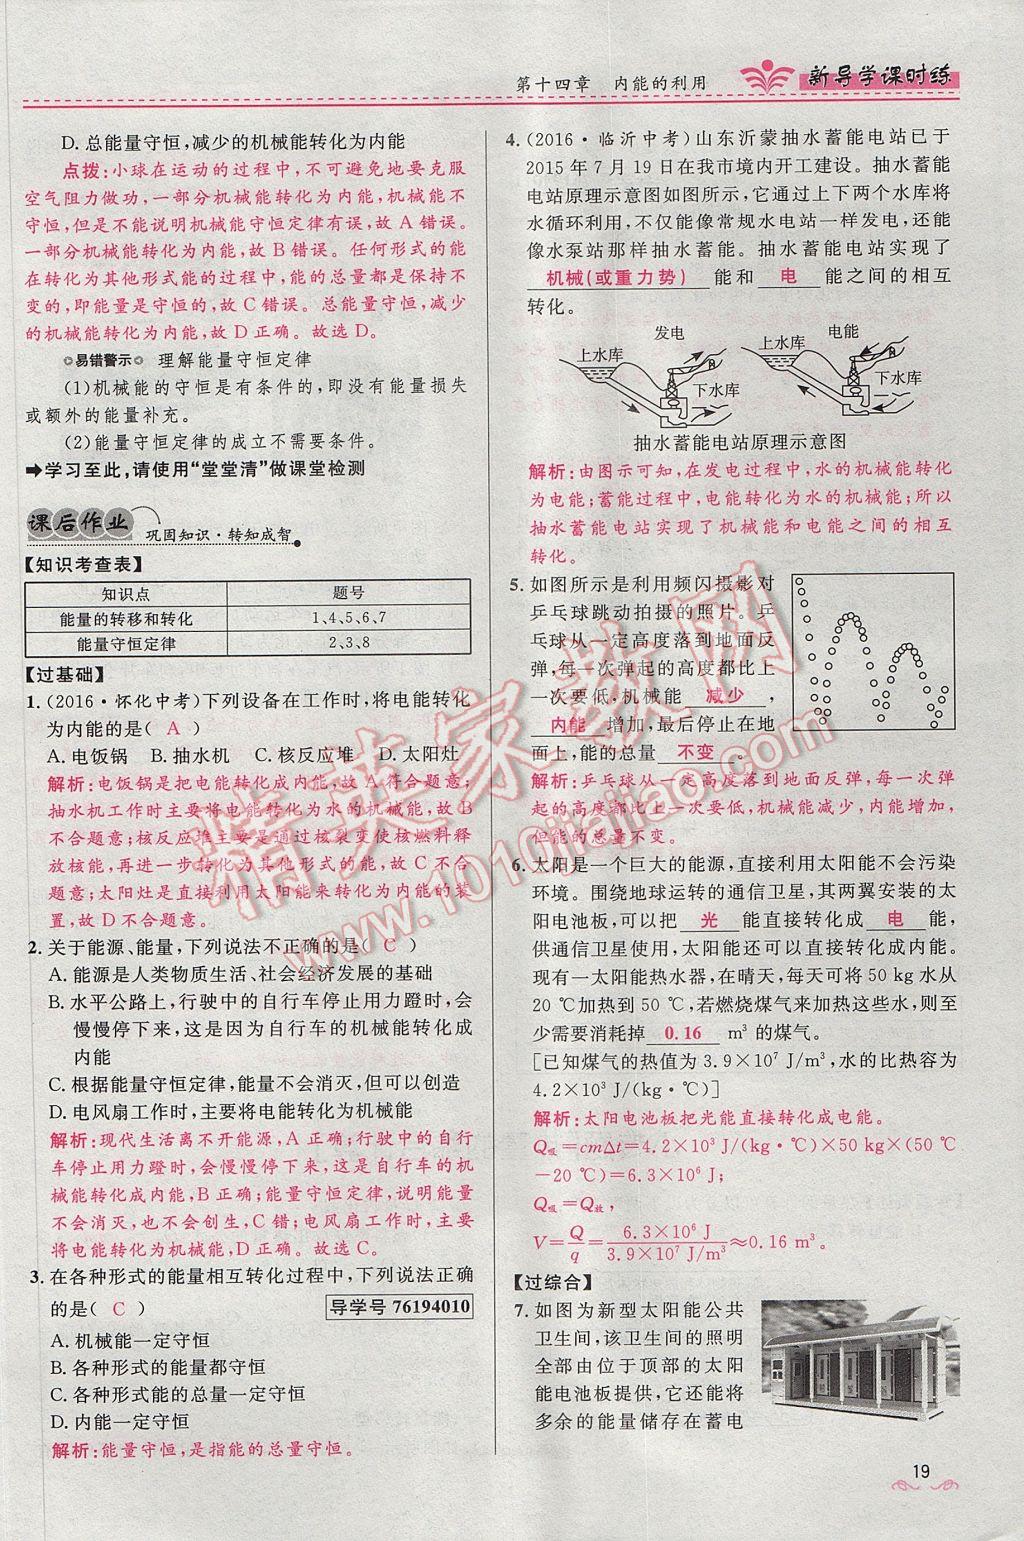 第十四章 内能的利用
新导学课时练
D. 总能量守恒,减少的机械能转化为内能
点拨:小球在运动的过程中,不可避免地要克服
空气阻力做功,一部分机械能转化为内能,机械能不
守恒,但是不能说明机械能守恒定律有误,故 A 错误。
一部分机械能转化为内能,故 B 错误。任何形式的能
在转化为其他形式能的过程中,能的总量都是保持不
变的,即能量是守恒的,故 C 错误。总能量守恒,减少
的机械能转化为内能,故 D 正确。故选 D。
易错警示 理解能量守恒定律
(1)机械能的守恒是有条件的,即没有能量损失
或额外的能量补充。
(2)能量守恒定律的成立不需要条件。
➡学习至此,请使用“堂堂清”做课堂检测
课后作业 巩固知识·转知成智
【知识考查表】
知识点 题号
能量的转移和转化 1、4、5、6、7
能量守恒定律 2、3、8
【过基础】
1. (2016·怀化中考)下列设备在工作时,将电能转化
为内能的是( A )
A. 电饭锅 B. 抽水机 C. 核反应堆 D. 太阳灶
解析:电饭锅是把电能转化成内能,故 A 符合题意;
抽水机工作时主要将电能转化为水的机械能,故 B
不合题意;核反应堆主要是核裂变使核燃料释
放核能,再进一步转化为其他形式的能,故 C 不合
题意;太阳灶是直接利用太阳能来转化为内能的装
置,故 D 不合题意。
2. 关于能源、能量,下列说法不正确的是( C )
A. 能源是人类物质生活、社会经济发展的基础
B. 水平公路上,行驶中的自行车停止用力蹬时,会
慢慢停下来,这是因为自行车的机械能转化成
内能
C. 根据能量守恒定律,能量不会消灭,但可以创造
D. 电风扇工作时,主要将电能转化为机械能
解析:现代生活离不开能源,A 正确;行驶中的自行
车停止用力蹬时,会慢慢停下来,这是自行车的机
械能转化成内能,B 正确;能量守恒定律,说明能量
不会消灭,也不会创生,C 错;电风扇工作时,主要
将电能转化为机械能,D 正确。故选 C。
3. 在各种形式的能量相互转化过程中,下列说法正确
的是( C ) 导学号 76194010
A. 机械能一定守恒
B. 各种形式的能量都守恒
C. 各种形式的能的总量一定守恒
D. 内能一定守恒
解析:能量守恒,是指能的总量守恒。
4. (2016·临沂中考)山东沂蒙抽水蓄能电站已于
2015 年 7 月 19 日在我市境内开工建设。抽水蓄能
电站原理示意图如图所示,它通过上下两个水库将
水循环利用,不仅能像常规水电站一样发电,还能
像水泵站那样抽水蓄能。抽水蓄能电站实现了
机械(或重力势) 能和 电 能之间的相互
转化。
发电 电能
上水库 上水库
下水库 下水库
抽水蓄能电站原理示意图
解析:由图示可知,在发电过程中,水的机械能转化
为电能;蓄能过程中,电能转化为水的机械能;所以
抽水蓄能电站实现了机械能和电能之间的相互
转化。
5. 如图所示是利用频闪摄影对
乒乓球跳动拍摄的照片。乒
乓球从一定高度落到地面反
弹,每一次弹起的高度都比上
一次要低,机械能 减少 ,
内能 增加,最后停止在地
面上,能的总量 不变 。
解析:乒乓球从一定高度落到地面反弹,每一次弹
起的高度都比上一次要低,机械能减少,内能增加,
但能的总量不变。
6. 太阳是一个巨大的能源,直接利用太阳能不会污染
环境。围绕地球运转的通信卫星,其两翼安装的太
阳电池板,可以把 光 能直接转化成 电 能,
供通信卫星使用,太阳能还可以直接转化成内能。
现有一太阳能热水器,在晴天,每天可将 50 kg 水从
20 ℃加热到 50 ℃,若燃烧煤气来加热这些水,则至
少需要消耗掉 0.16 m³ 的煤气。
[已知煤气的热值为 3.9×10⁷ J/m³,水的比热容为
4.2×10³ J/(kg·℃)]
解析:太阳电池板把光能直接转化成电能。
Q吸=cmΔt=4.2×10³ J/(kg·℃)×50 kg×(50 ℃
-20 ℃)=6.3×10⁶ J;
Q吸=Q放,
V=Q/q=6.3×10⁶ J/3.9×10⁷ J/m³≈0.16 m³。
【过综合】
7. 如图为新型太阳能公共
卫生间,该卫生间的照明
全部由位于顶部的太阳
能电池板提供,它还能将
多余的能量储存在蓄电
19
精英家教网
www.1010jiajiao.com